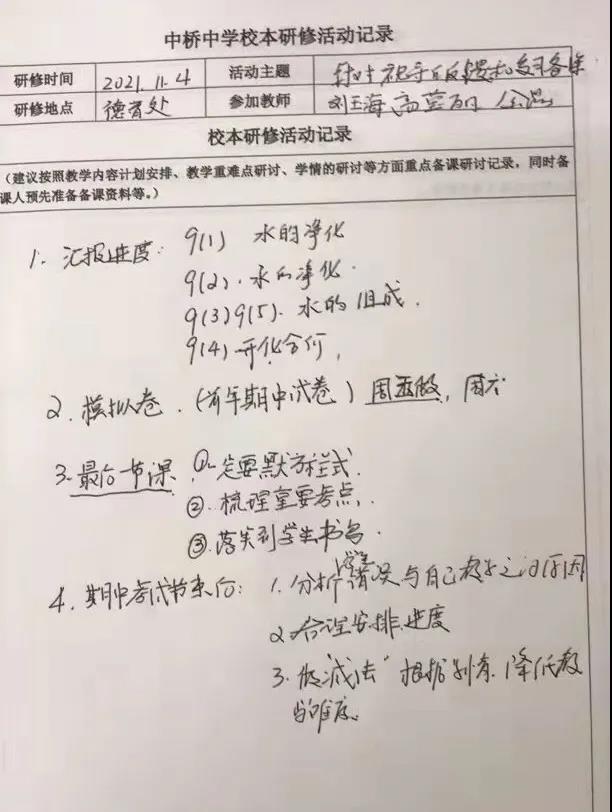 中桥中学校本研修活动记录
研修时间 2021.11.4 活动主题 备课
研修地点 德育处 参加教师 刘玉海、高
校本研修活动记录
(建议按照教学内容计划安排、教学重难点研讨、学情的研讨等方面重点备课研讨记录,同时备
课人预先准备备课资料等。)
1. 汇报进度: 9(1) 水的净化
9(2). 水的净化.
9(3)9(5). 水的组成.
9(4)
2. 模拟卷. (前年期中试卷) 周五
3. 最后一节课 ①一定要默方程式.
②. 梳理重要考点.
③. 落实到学生书写.
4. 期中考试结束后: 1. 分析学生情况与自己教学之间原因
2. 合理安排进度
3. 做"减法" 根据 降低教
学难度。